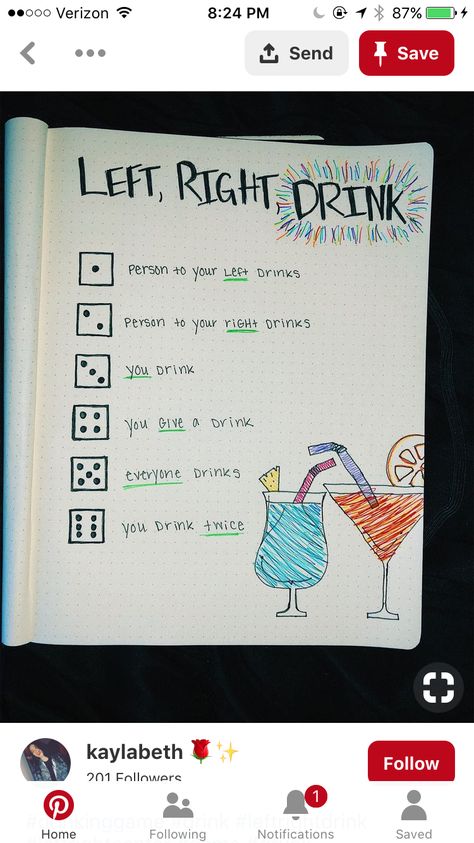 Verizon
8:24 PM
87%
Send
Save
LEFT, RIGHT, DRINK
Person to your Left Drinks
Person to your right Drinks
you Drink
you Give a Drink
everyone Drinks
you Drink twice
kaylabeth
201 Followers
Follow
1
Home
Following
Notifications
Saved